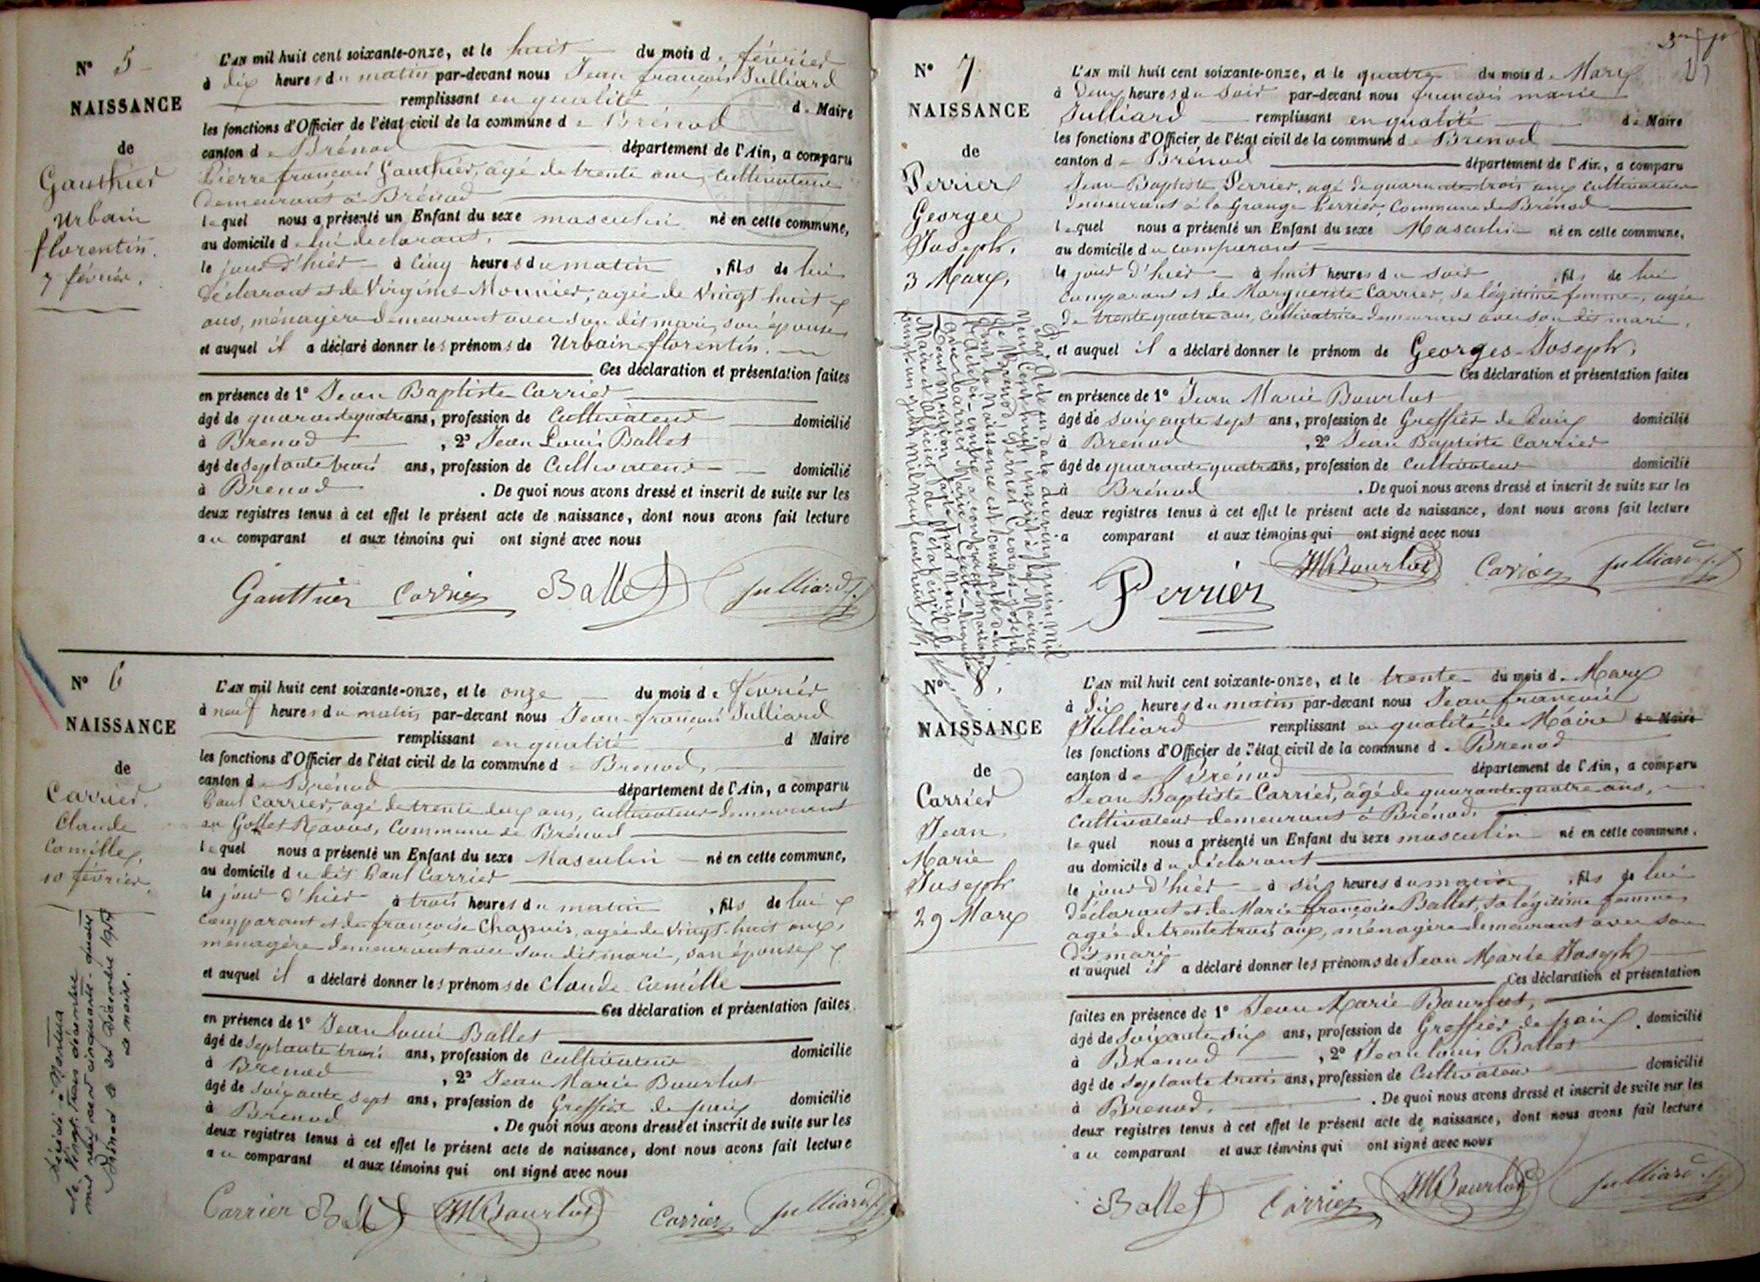 N° 5
NAISSANCE
de
Gauthier
Urbain
florentin.
7 février.
L'AN mil huit cent soixante-onze, et le huit du mois de février
à dix heures du matin par-devant nous Jean françois Julliard
remplissant en qualité de Maire
les fonctions d'Officier de l'état civil de la commune de Brénod
canton de Brénod département de l'Ain, a comparu
Pierre françois Gauthier, agé de trente ans, cultivateur
demeurant à Brénod
lequel nous a présenté un Enfant du sexe masculin né en cette commune,
au domicile de lui déclarant,
le jour d'hier à cinq heures du matin, fils de lui
déclarant et de Virginie Monnier, agée de vingt huit
ans, ménagère demeurant avec son dit mari, son épouse
et auquel il a déclaré donner les prénoms de Urbain florentin.
Ces déclaration et présentation faites
en présence de 1° Jean Baptiste Carrier
âgé de quarante quatre ans, profession de Cultivateur domicilié
à Brenod, 2° Jean Louis Ballet
âgé de septante trois ans, profession de Cultivateur domicilié
à Brenod. De quoi nous avons dressé et inscrit de suite sur les
deux registres tenus à cet effet le présent acte de naissance, dont nous avons fait lecture
au comparant et aux témoins qui ont signé avec nous
Gauthier Carrier Ballet Julliard
N° 6
NAISSANCE
de
Carrier.
Claude
Camille,
10 février.
Décédé à Nantua
le vingt trois décembre
mil neuf cent cinquante-quatre
Brénod le
le maire.
L'AN mil huit cent soixante-onze, et le onze du mois de février
à neuf heures du matin par-devant nous Jean-françois Julliard
remplissant en qualité d Maire
les fonctions d'Officier de l'état civil de la commune de Brenod,
canton de Brénod département de l'Ain, a comparu
Paul Carrier, agé de trente deux ans, cultivateur demeurant
en Gollet Ravas, Commune de Brénod
lequel nous a présenté un Enfant du sexe Masculin né en cette commune,
au domicile du dit Paul Carrier
le jour d'hier à trois heures du matin, fils de lui
comparant et de françoise Chapuis, agée de vingt-huit ans,
ménagère demeurant avec son dit mari, son épouse
et auquel il a déclaré donner les prénoms de Claude Camille
Ces déclaration et présentation faites
en présence de 1° Jean louis Ballet
âgé de septante trois ans, profession de cultivateur domicilié
à Brenod, 2° Jean Marie Bourlot
âgé de soixante sept ans, profession de Greffier de paix domicilié
à Brenod. De quoi nous avons dressé et inscrit de suite sur les
deux registres tenus à cet effet le présent acte de naissance, dont nous avons fait lecture
au comparant et aux témoins qui ont signé avec nous
Carrier Ballet JMBourlot Carrier Julliard
N° 7
NAISSANCE
de
Perrier
Georges
Joseph.
3 Marx,
L'AN mil huit cent soixante-onze, et le quatre du mois de Marx
à deux heures du soir par-devant nous françois marie
Julliard remplissant en qualité de Maire
les fonctions d'Officier de l'état civil de la commune de Brénod
canton de Brénod département de l'Ain, a comparu
Jean Baptiste Perrier, agé de quarante trois ans cultivateur
demeurant à la Grange Perrier, Commune de Brénod
lequel nous a présenté un Enfant du sexe Masculin né en cette commune,
au domicile du comparant
le jour d'hier à huit heures du soir, fils de lui
comparant et de Marguerite Carrier, sa légitime femme, agée
de trente quatre ans, cultivatrice demeurant avec son dit mari.
et auquel il a déclaré donner le prénom de Georges-Joseph.
Ces déclaration et présentation faites
en présence de 1° Jean Marie Bourlot
âgé de soixante sept ans, profession de Greffier de Paix domicilié
à Brenod, 2° Jean Baptiste Carrier
âgé de quarante quatre ans, profession de cultivateur domicilié
à Brénod. De quoi nous avons dressé et inscrit de suite sur les
deux registres tenus à cet effet le présent acte de naissance, dont nous avons fait lecture
a comparant et aux témoins qui ont signé avec nous
Perrier JMBourlot Carrier Julliard
N° 8.
NAISSANCE
de
Carrier
Jean
Marie
Joseph
29 Marx
L'AN mil huit cent soixante-onze, et le trente du mois de Marx
à dix heures du matin par-devant nous Jean françois
Julliard remplissant en qualité de Maire de Maire
les fonctions d'Officier de l'état civil de la commune de Brenod
canton de Brénod département de l'Ain, a comparu
Jean Baptiste Carrier, agé de quarante quatre ans,
cultivateur demeurant à Brénod.
lequel nous a présenté un Enfant du sexe masculin né en cette commune,
au domicile du déclarant
le jour d'hier à six heures du matin, fils de lui
déclarant et de Marie françoise Ballet, sa légitime femme,
agée de trente trois ans, ménagère demeurant avec son
dit mari
et auquel il a déclaré donner les prénoms de Jean Marie Joseph
Ces déclaration et présentation
faites en présence de 1° Jean Marie Bourlot,
âgé de soixante six ans, profession de Greffier de paix, domicilié
à Brenod, 2° Jean louis Ballet
âgé de septante trois ans, profession de Cultivateur domicilié
à Brenod. De quoi nous avons dressé et inscrit de suite sur les
deux registres tenus à cet effet le présent acte de naissance, dont nous avons fait lecture
au comparant et aux témoins qui ont signé avec nous
Ballet Carrier JMBourlot Julliard